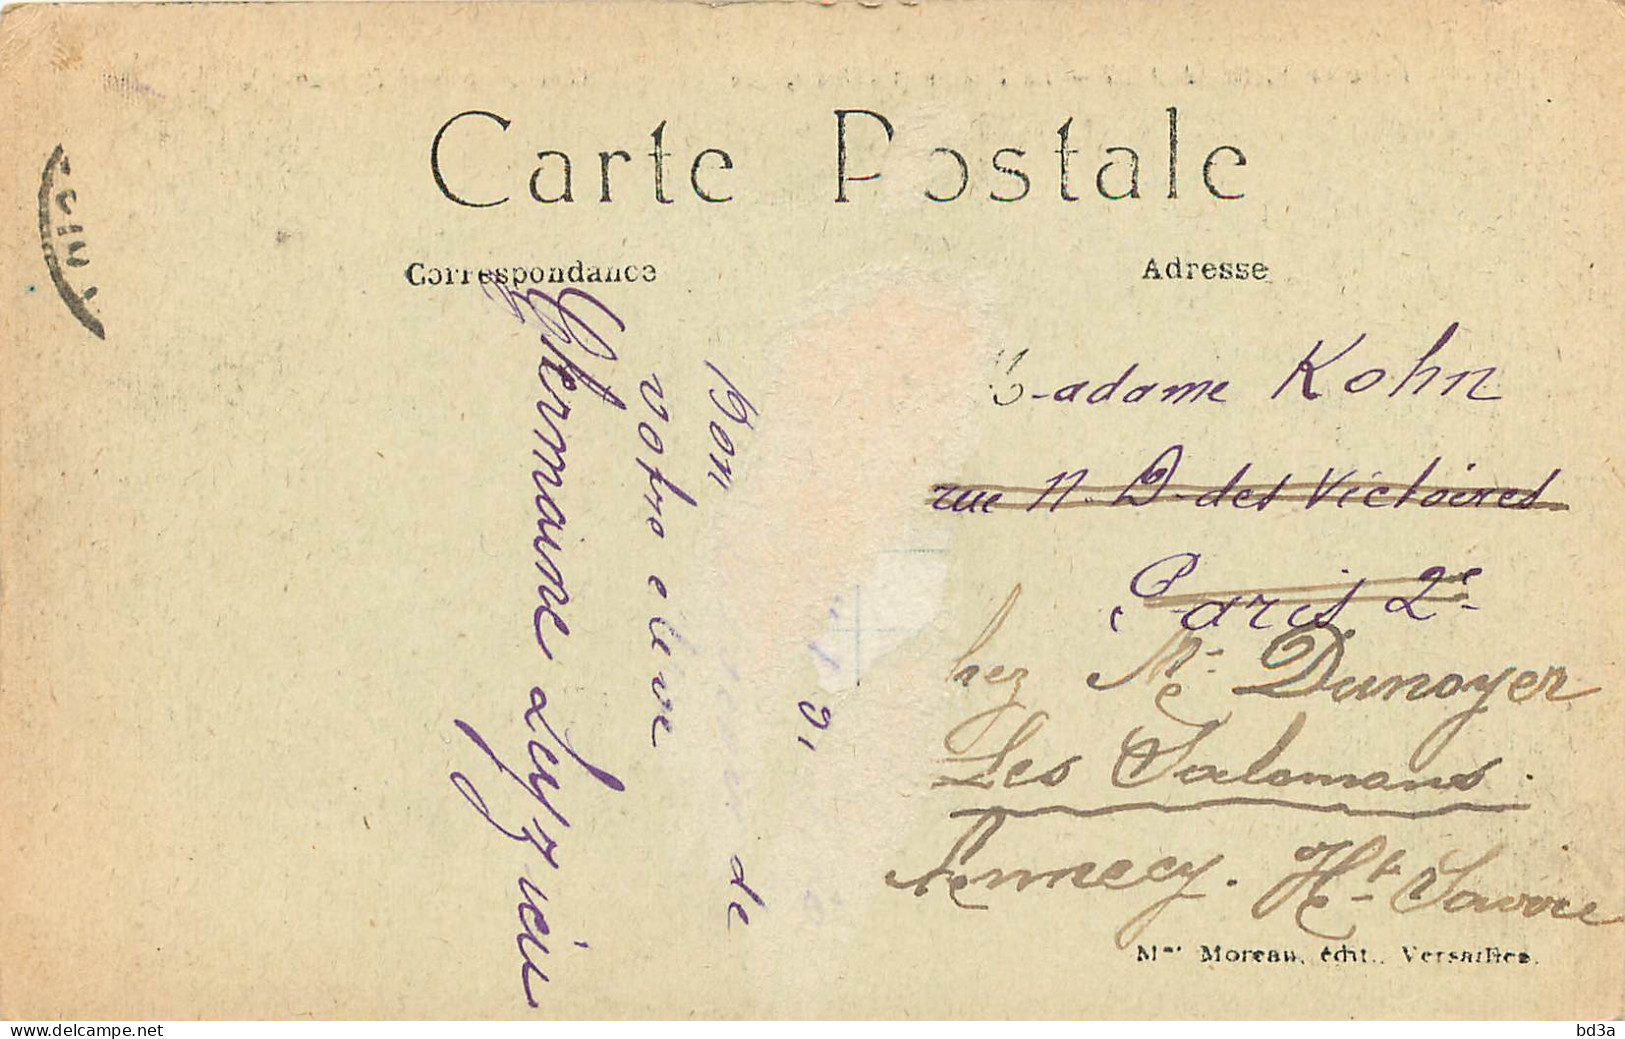 Carte Postale
Correspondance
Adresse
Bon
de
votre élève
Germaine Leyzieu
Madame Kohn
rue N. D. des Victoires
Paris 2e
chez Me Dunoyer
Les Salomons.
Annecy. Hte Savoie
Mme Moreau, édit., Versailles.
www.delcampe.net
bd3a